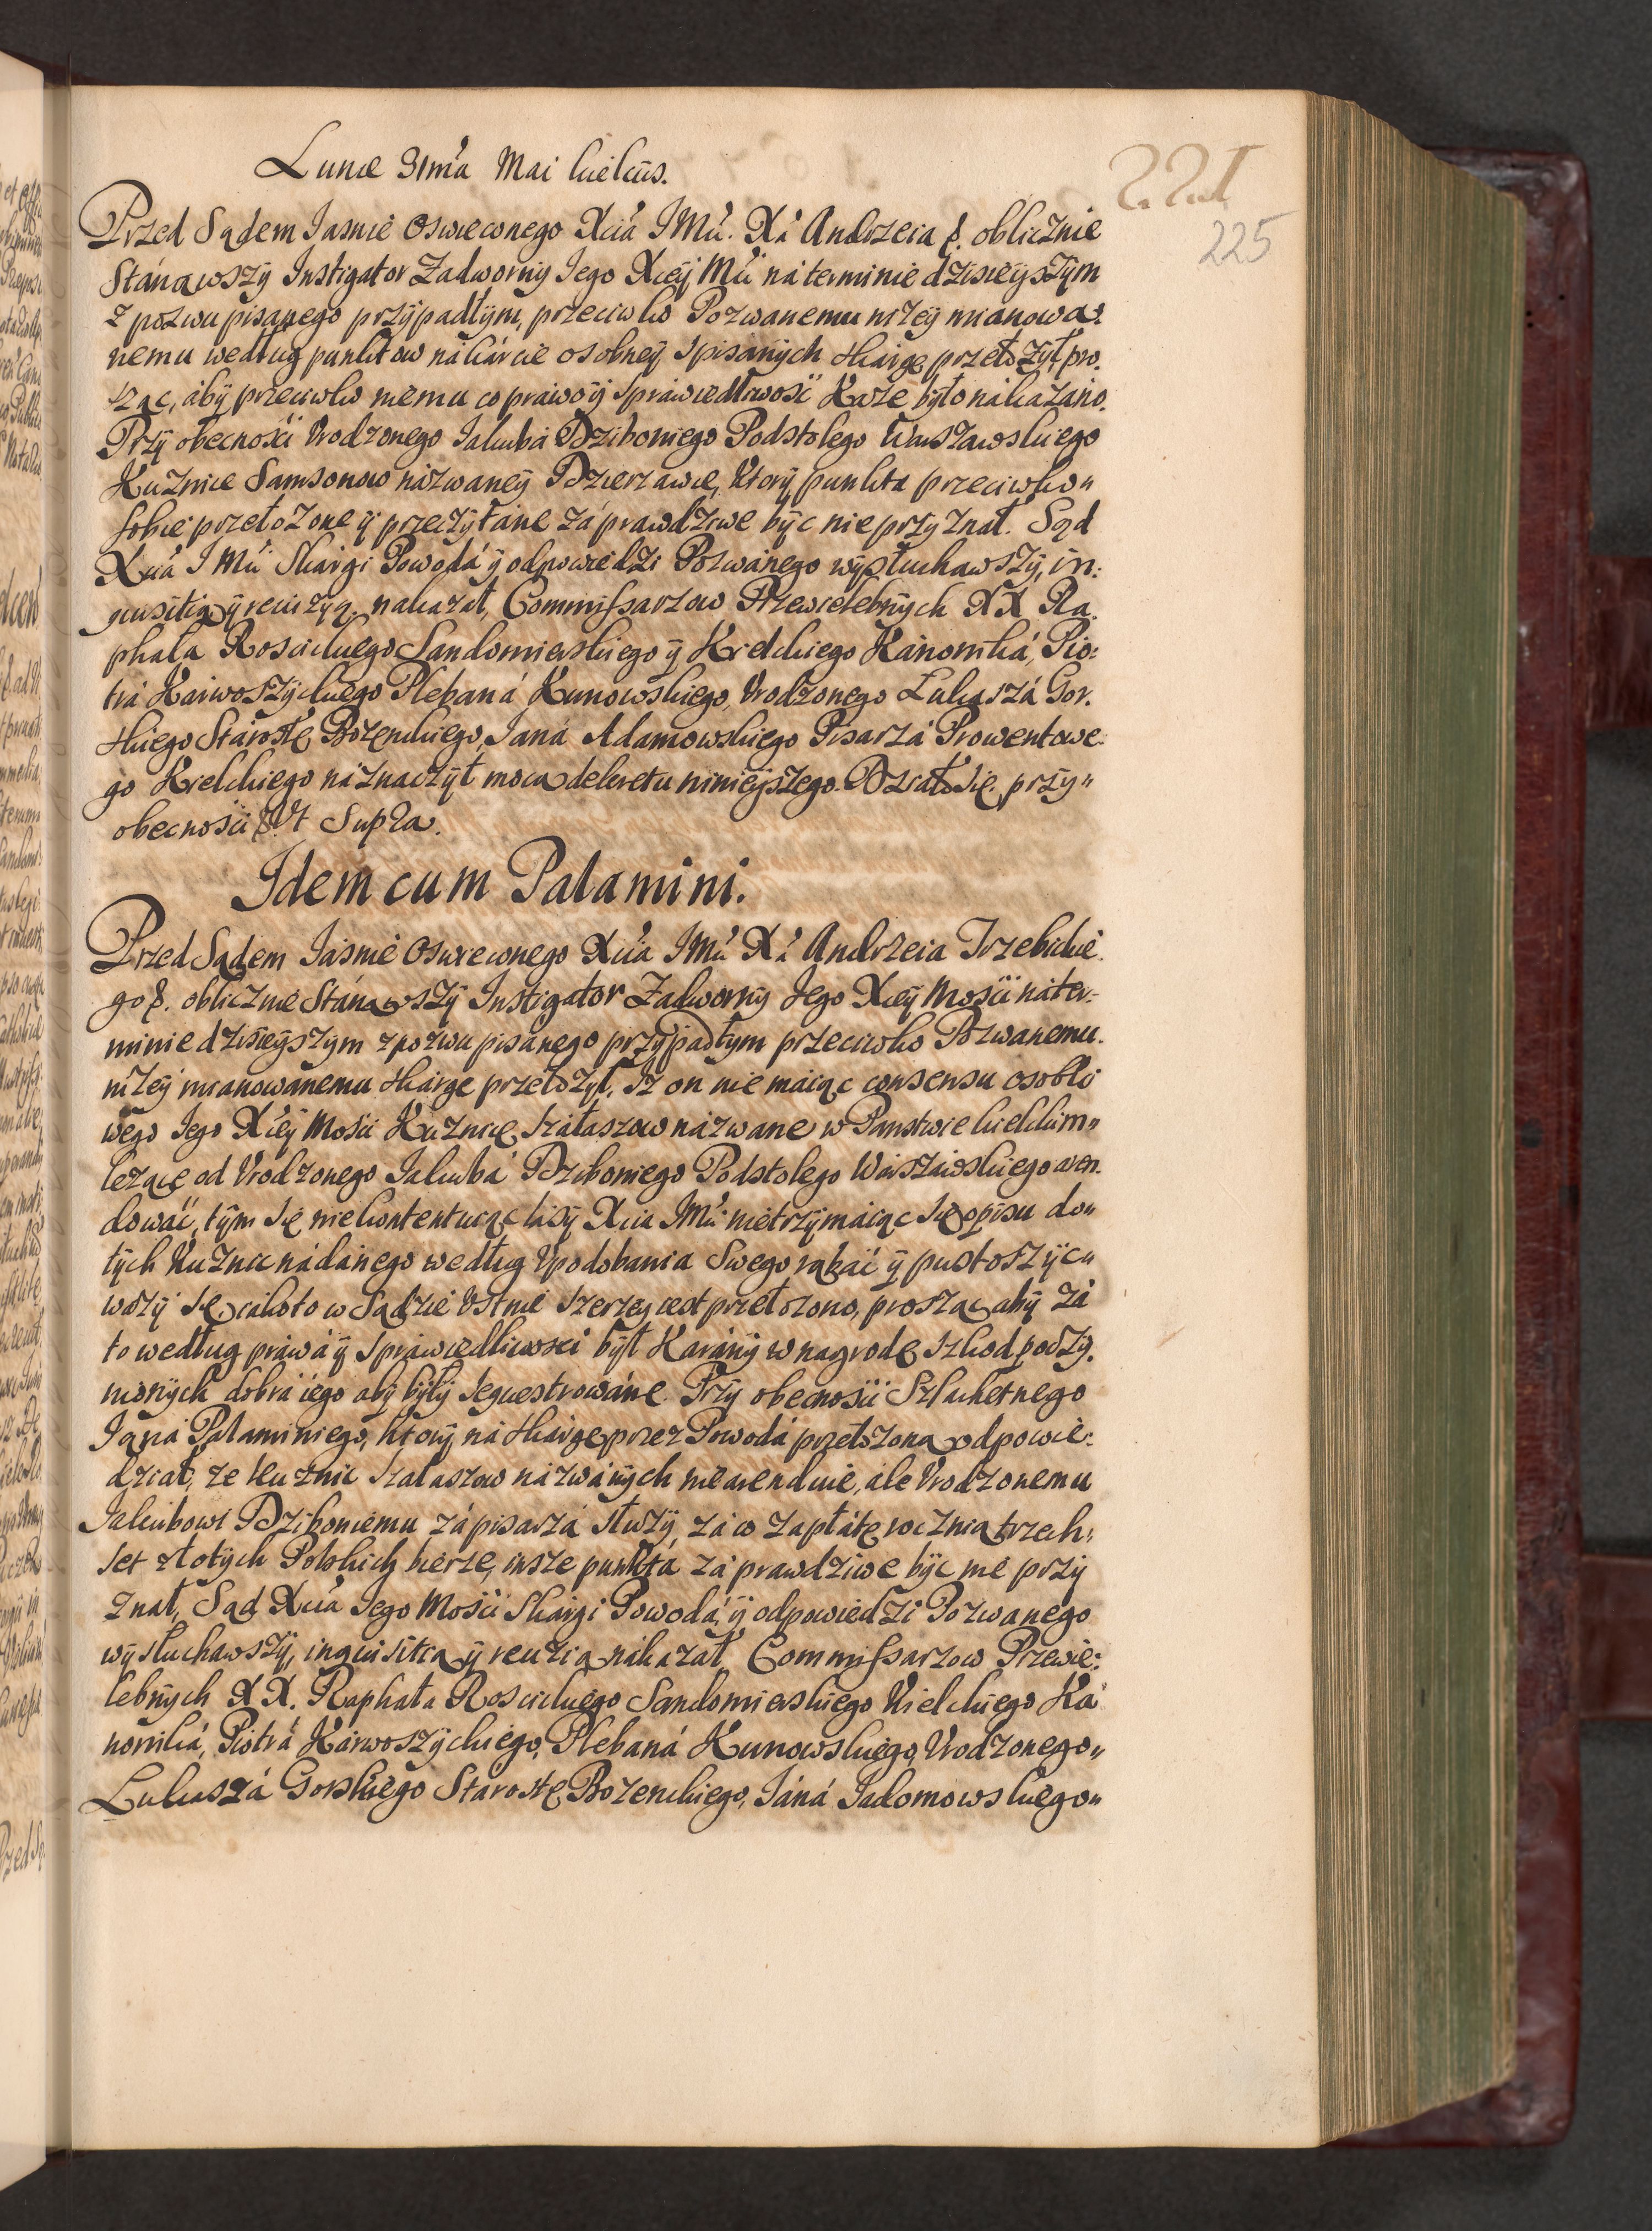 221
225
Lunæ 31ma Mai Kielcüs.
Przed Sądem Iasnie Oswieconego Xcia IMci. Xa Andrzeia &. oblicznie
Stánąwszÿ Instigator Zadwornÿ Iego Xcéÿ Mci ná terminie dzisieÿszÿm
z pozwu pisanego przÿpadłÿm, przeciwko Pozwanemu niżeÿ mianowa:
nemu według punktow ná kárcie osobneÿ spisánÿch skárgę przełożÿł pro:
sząc, abÿ przeciwko niemu co práwo ÿ spráwiedliwość Każe bÿło nákazáno.
Przÿ obecności Vrodzonego Iakubá Dziboniego Podstolego Warszawskiego
Kuźnice Samsonow názwaneÿ Dzierzawcę, Ktorÿ punkta przeciwko"
sobie przełożone ÿ przeczÿtáne zá prawdziwe bÿc nie przÿznał. Sąd
Xcia IMci Skárgi Powodá ÿ odpowiedzi Pozwánego wÿsłuchawszÿ, in:
quisitią ÿ rewizÿą nakazał, Commissarzow Przewielebnÿch XX Ra:
phała Roscickiego Sandomierskiego ÿ Kielckiego Kánoniká, Pio:
trá Kárwoszÿckiego Plebaná Kunowskiego, Vrodzonego Lukaszá Gor:
skiego Stárostę Bozenckiego, Ianá Adamowskiego Pisarzá Prowentowe:
go Kielckiego náznaczÿł mocą dekretu ninieÿszego. Działo się przÿ"
obecności & Vt Supra.
Idem cum Palamini.
Przed Sądem Iásnie Oswieconego Xcia IMci Xa Andrzeia Trzebickie:
go &. oblicznie Stánąwszÿ Instigator Zadwornÿ Iego Xcéÿ Mości ná ter:
minie dzisieÿszÿm z pozwu pisánego przÿpadłym przeciwko Pozwanemu
niżeÿ mianowánemu skárgę przełożÿł, Iż on nie máiąc consensu osobli
wego Iego Xcéÿ Mości Kuźnicę Szałaszow názwaną w Panstwie Kielckim"
leżącę od Vrodzonego Iakubá Dziboniego Podstolego Wárszáwskiego aren:
dowáć, tÿm się nie kontentuiąc lásÿ Xcia IMci nietrzÿmáiąc się opisu do"
tÿch Kuźnic nádánego według Vpodobania Swego rąbáć ÿ pustoszÿc"
wazÿ się iáko to w Sądzie Vstnie szerzeÿ iest przełożono, prosząc abÿ zá
to według práwá ÿ spráwiedliwości bÿł Karánÿ w nagrodę szkod podzÿ:
monÿch dobrá iego abÿ bÿłÿ sequestrowáne. Przÿ obecności Szlachetnego
Iana Palaminiego, ktorÿ ná skárgę przez Powodá przełożoną odpowie:
dział, że Kuźnic Szałaszow názwánÿch nie arenduie, ále Vrodzonemu
Iakubowi Dziboniemu zá pisarzá służÿ, zá co zapłátę rocznią trzech:
set złotÿch Polskich bierze, insze punktá zá prawdziwe bÿc nie przÿ
znał, Sąd Xcia Iego Mości Skárgi Powodá ÿ odpowiedzi Pozwanego
wÿsłuchawszÿ, inquisitią ÿ reuizią nákazał, Commissarzow Przewie:
lebnÿch XX. Raphała Roscickiego Sandomierskiego Kielckiego Ka
noniká, Piotrá Kárwoszÿckiego, Plebaná Kunowskiego, Vrodzonego"
Lukaszá Gorskiego Starostę Bozenckiego, Iáná Iadomowskiego"